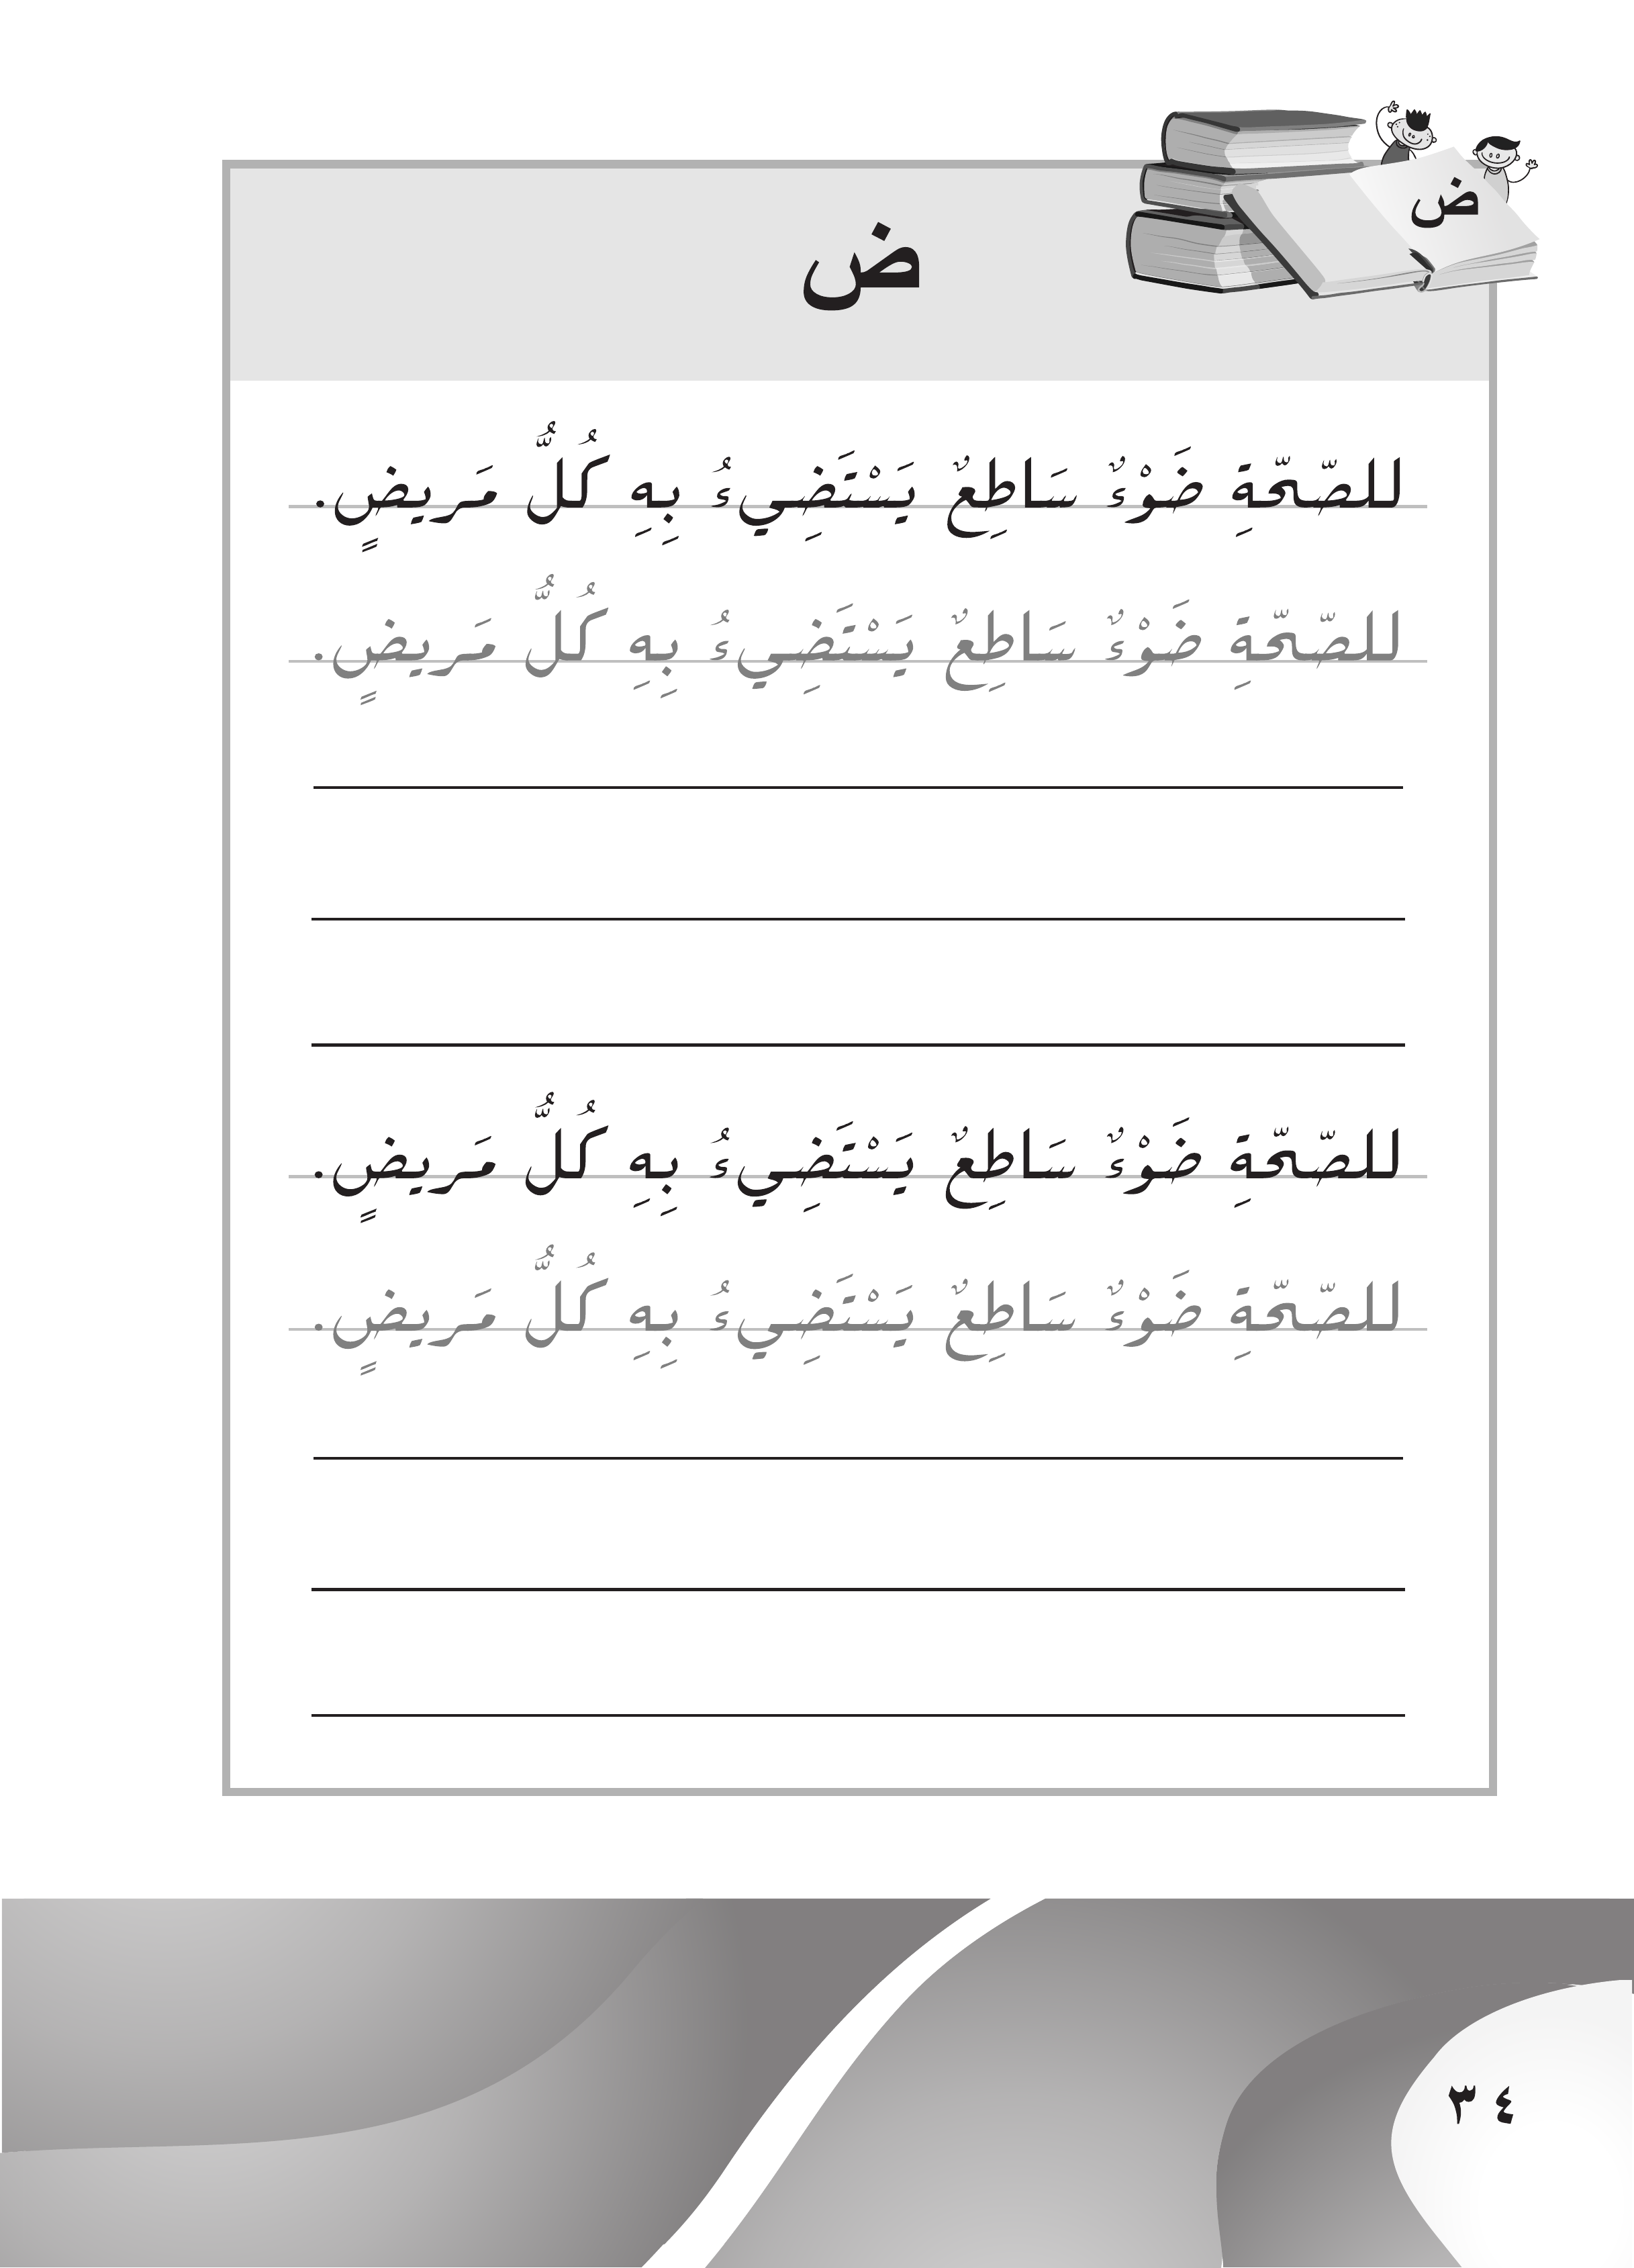 ض
ض
للصّحّةِ ضَوْءٌ سَاطِعٌ يَسْتَضِيءُ بِهِ كُلُّ مَريضٍ.
للصّحّةِ ضَوْءٌ سَاطِعٌ يَسْتَضِيءُ بِهِ كُلُّ مَريضٍ.
للصّحّةِ ضَوْءٌ سَاطِعٌ يَسْتَضِيءُ بِهِ كُلُّ مَريضٍ.
للصّحّةِ ضَوْءٌ سَاطِعٌ يَسْتَضِيءُ بِهِ كُلُّ مَريضٍ.
٣٤